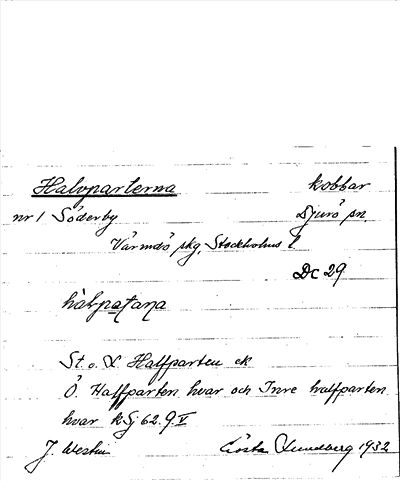 Halvparterna kobbar
nr 1 Söderby Djurö sn.
Värmdö skg, Stockholms l
Dc 29
St. o. L. Halfparten ek
Ö. Halfparten hvar och Inre halfparten
hvar kSj 62.9.V
J. Westin Gösta Lundberg 1932